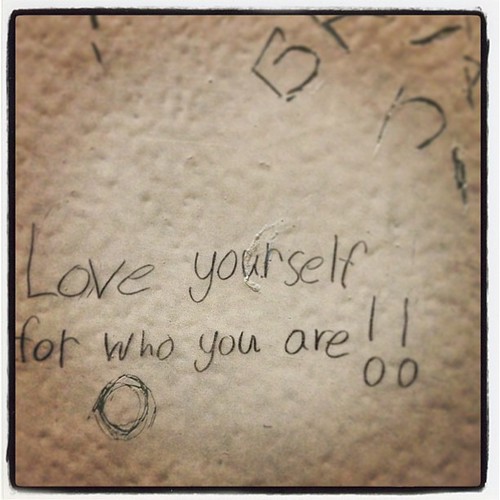 Love yourself
for who you are!!